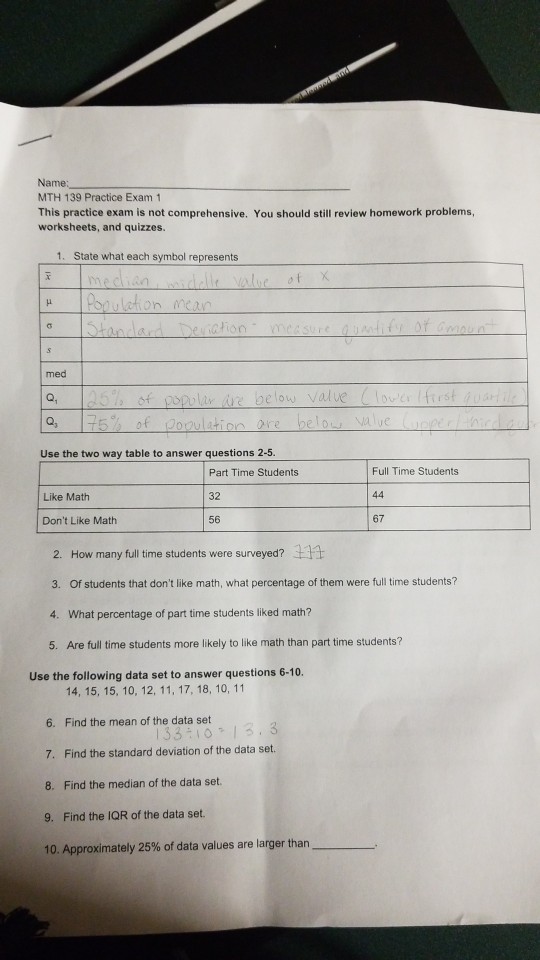 Name:
MTH 139 Practice Exam 1
This practice exam is not comprehensive. You should still review homework problems,
worksheets, and quizzes.
1. State what each symbol represents
x̄ median, middle value of x
μ Population mean
σ Standard Deviation - measure quantify of amount
s
med
Q₁ 25% of popular are below value (lower/first quartile)
Q₃ 75% of population are below value (upper/third
Use the two way table to answer questions 2-5.
Part Time Students Full Time Students
Like Math 32 44
Don't Like Math 56 67
2. How many full time students were surveyed?
3. Of students that don't like math, what percentage of them were full time students?
4. What percentage of part time students liked math?
5. Are full time students more likely to like math than part time students?
Use the following data set to answer questions 6-10.
14, 15, 15, 10, 12, 11, 17, 18, 10, 11
6. Find the mean of the data set
133÷10=13.3
7. Find the standard deviation of the data set.
8. Find the median of the data set.
9. Find the IQR of the data set.
10. Approximately 25% of data values are larger than ________.